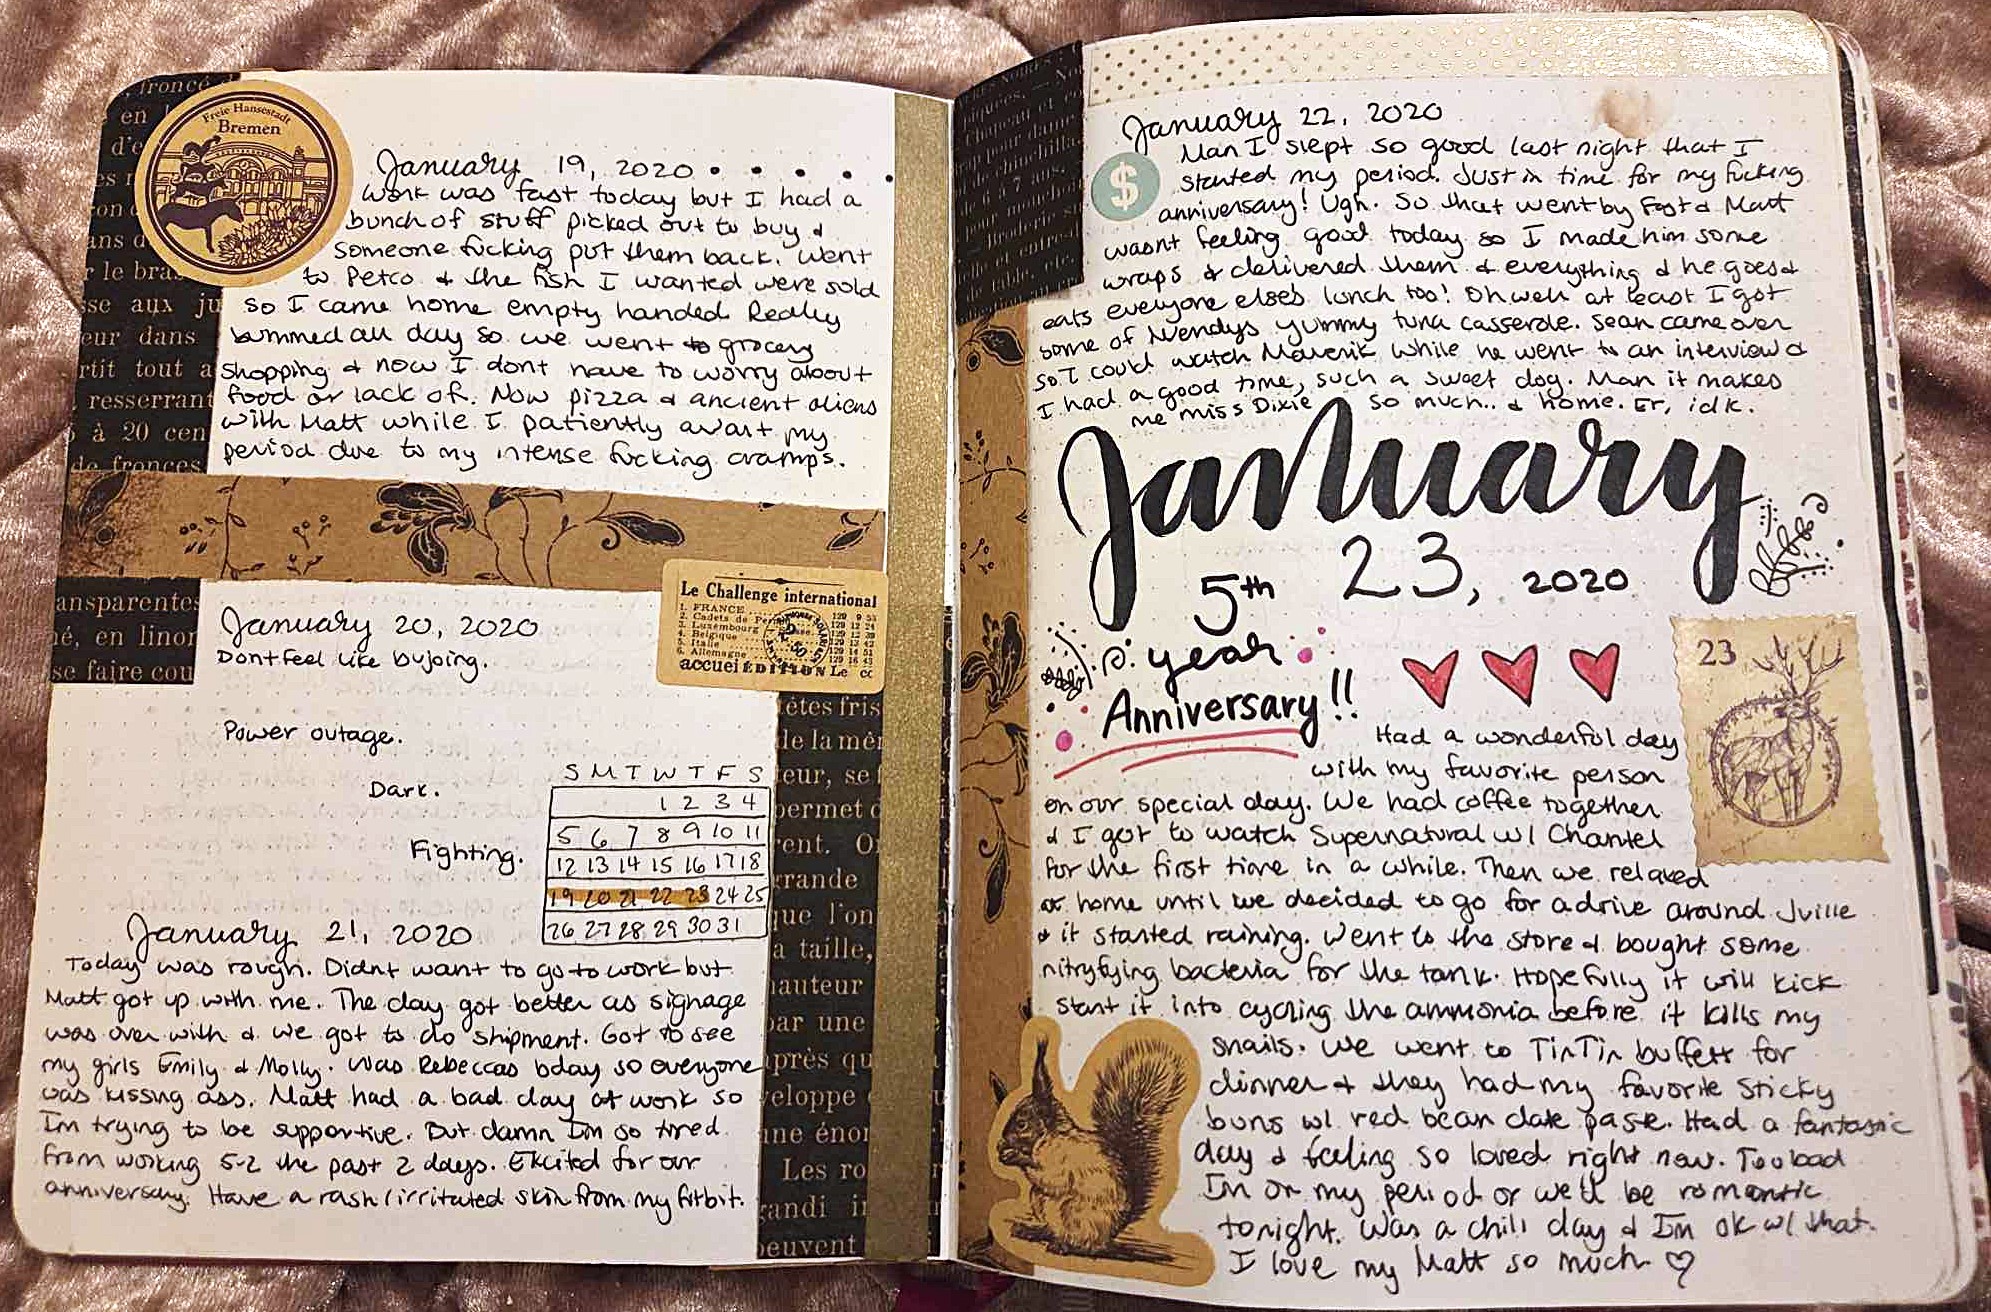 Freie Hansestadt
Bremen
January 19, 2020
Work was fast today but I had a
bunch of stuff picked out to buy &
someone fucking put them back. Went
to Petco & the fish I wanted were sold
so I came home empty handed. Really
bummed all day so we went to grocery
shopping & now I dont have to worry about
food or lack of. Now pizza & ancient aliens
with Matt while I patiently await my
period due to my intense fucking cramps.
, froncé
en
d'e
es
con
ans d
r le bra
sse aux ju
eur dans
rtit tout a
resserrant
à 20 cen
de fronces
ansparentes
né, en linor
se faire cou
Le Challenge international
1. FRANCE
2. Cadets de
3. Luxembourg
4. Belgique
5. Italie
6. Allemagne
accuei ÉDITION Le cc
January 20, 2020
Dont feel like bujoing.
Power outage.
Dark.
Fighting.
S M T W T F S
1 2 3 4
5 6 7 8 9 10 11
12 13 14 15 16 17 18
19 20 21 22 23 24 25
26 27 28 29 30 31
January 21, 2020
Today was rough. Didnt want to go to work but
Matt got up with me. The day got better as signage
was over with & we got to do shipment. Got to see
my girls Emily & Molly. Was Rebeccas bday so everyone
was kissing ass. Matt had a bad day at work so
Im trying to be supportive. But damn Im so tired
from working 5-2 the past 2 days. Excited for our
anniversary. Have a rash/irritated skin from my fitbit.
ètes fris
de la mê
teur, se
permet d
ent. O
grande
que l'on
a taille,
hauteur
par une
près qu
veloppe
ine énor
Les ro
randi i
peuvent
January 22, 2020
$
Man I slept so good last night that I
started my period. Just in time for my fucking
anniversary! Ugh. So that went by fast & Matt
wasnt feeling good today so I made him some
wraps & delivered them & everything & he goes &
eats everyone elses lunch too! Oh well at least I got
some of Wendys yummy tuna casserole. Sean came over
so I could watch Maverik while he went to an interview &
I had a good time, such a sweet dog. Man it makes
me miss Dixie so much.. & home. Er, idk.
January
23, 2020
5th
year
Anniversary!!
23
Had a wonderful day
with my favorite person
on our special day. We had coffee together
& I got to watch Supernatural w/ Chantel
for the first time in a while. Then we relaxed
at home until we decided to go for a drive around Jville
& it started raining. Went to the store & bought some
nitryfying bacteria for the tank. Hopefully it will kick
start it into cycling the ammonia before it kills my
snails. We went to TinTin buffett for
dinner & they had my favorite sticky
buns w/ red bean date paste. Had a fantastic
day & feeling so loved right now. Too bad
Im on my period or we'll be romantic
tonight. Was a chill day & Im ok w/ that.
I love my Matt so much ♡